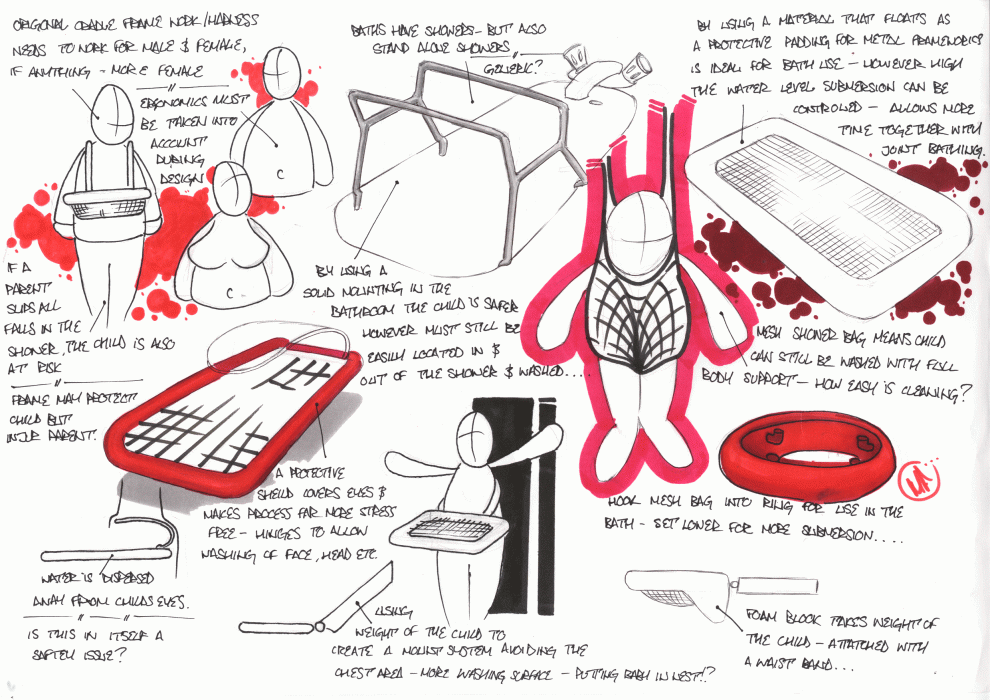 ORIGIONAL CRADLE FRAME WORK/HARNESS
NEEDS TO WORK FOR MALE & FEMALE,
IF ANYTHING - MORE FEMALE
ERGONOMICS MUST
BE TAKEN INTO
ACCOUNT
DURING
DESIGN
C
C
IF A
PARENT
SLIPS ALL
FALLS IN THE
SHOWER, THE CHILD IS ALSO
AT RISK
FRAME MAY PROTECT
CHILD BUT
INJUR PARENT!
BATHS HAVE SHOWERS - BUT ALSO
STAND ALONE SHOWERS
GENERIC?
BY USING A
SOLID MOUNTING IN THE
BATHROOM THE CHILD IS SAFER
HOWEVER MUST STILL BE
EASILY LOCATED IN &
OUT OF THE SHOWER & WASHED....
BY USING A MATERIAL THAT FLOATS AS
A PROTECTIVE PADDING FOR METAL FRAMEWORKS
IS IDEAL FOR BATH USE - HOWEVER HIGH
THE WATER LEVEL SUBVERSION CAN BE
CONTROLED - ALLOWS MORE
TIME TOGETHER WITH
JOINT BATHING.
MESH SHOWER BAG MEANS CHILD
CAN STILL BE WASHED WITH FULL
BODY SUPPORT - HOW EASY IS CLEANING?
HOOK MESH BAG INTO RING FOR USE IN THE
BATH - SET LOWER FOR MORE SUBVERSION....
A PROTECTIVE
SHEILD COVERS EYES &
MAKES PROCESS FAR MORE STRESS
FREE - HINGES TO ALLOW
WASHING OF FACE, HEAD ETC.
WATER IS DISPERSED
AWAY FROM CHILDS EYES.
IS THIS IN ITSELF A
SAFTEY ISSUE?
USING
WEIGHT OF THE CHILD TO
CREATE A MOUNT SYSTEM AVOIDING THE
CHEST AREA - MORE WASHING SURFACE - PUTTING BABY IN NEST!?
FOAM BLOCK TAKES WEIGHT OF
THE CHILD - ATTATCHED WITH
A WAIST BAND...